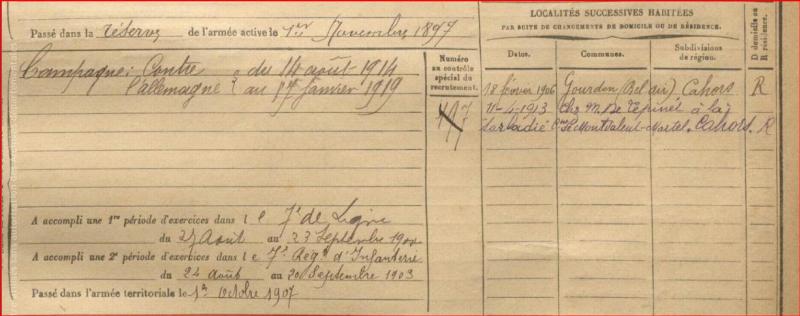 Passé dans la réserve de l'armée active le 1er Novembre 1897
Campagne: Contre du 14 août 1914
l'allemagne au Janvier 1919
A accompli une 1re période d'exercices dans l e 7e de Ligne
du 27 Août au 23 Septembre 1900
A accompli une 2e période d'exercices dans l e 7e Regt d'Infanterie
du 24 août au 20 Septembre 1903
Passé dans l'armée territoriale le 1er Octobre 1907
Numéro
au contrôle
spécial du
recrutement.
497
LOCALITÉS SUCCESSIVES HABITÉES
PAR SUITE DE CHANGEMENTS DE DOMICILE OU DE RÉSIDENCE.
Dates. Communes. Subdivisions
de région.
D domicile ou
R résidence.
18 février 1906 Gourdon (Bel air) Cahors R
11-4-1913 chez M. De à la
Martel. Cahors. R